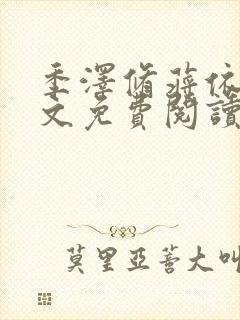 季澤脩蔣依
文免費閱讀
莫里亞蒂大叫